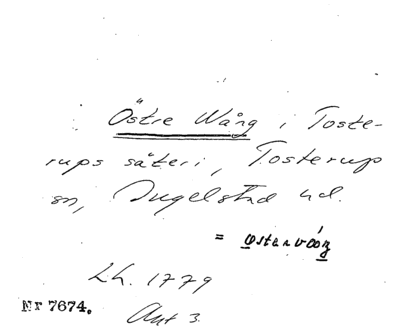 Östre Wång i Toste-
rups säteri, Tosterups
sn, Ingelstad hd.
= østervåŋ
Lh. 1779
Nr 7674.
Akt 3.